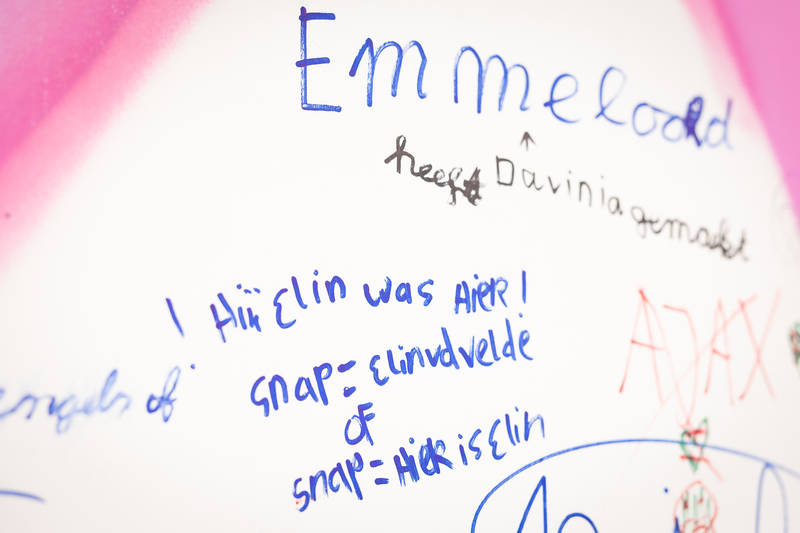 Emmeloord
↑
heeft Davinia gemaakt
! Hiii Elin was Hier!
snap= elinvdvelde
engels of
of
snap= Hier is Elin
AJAX